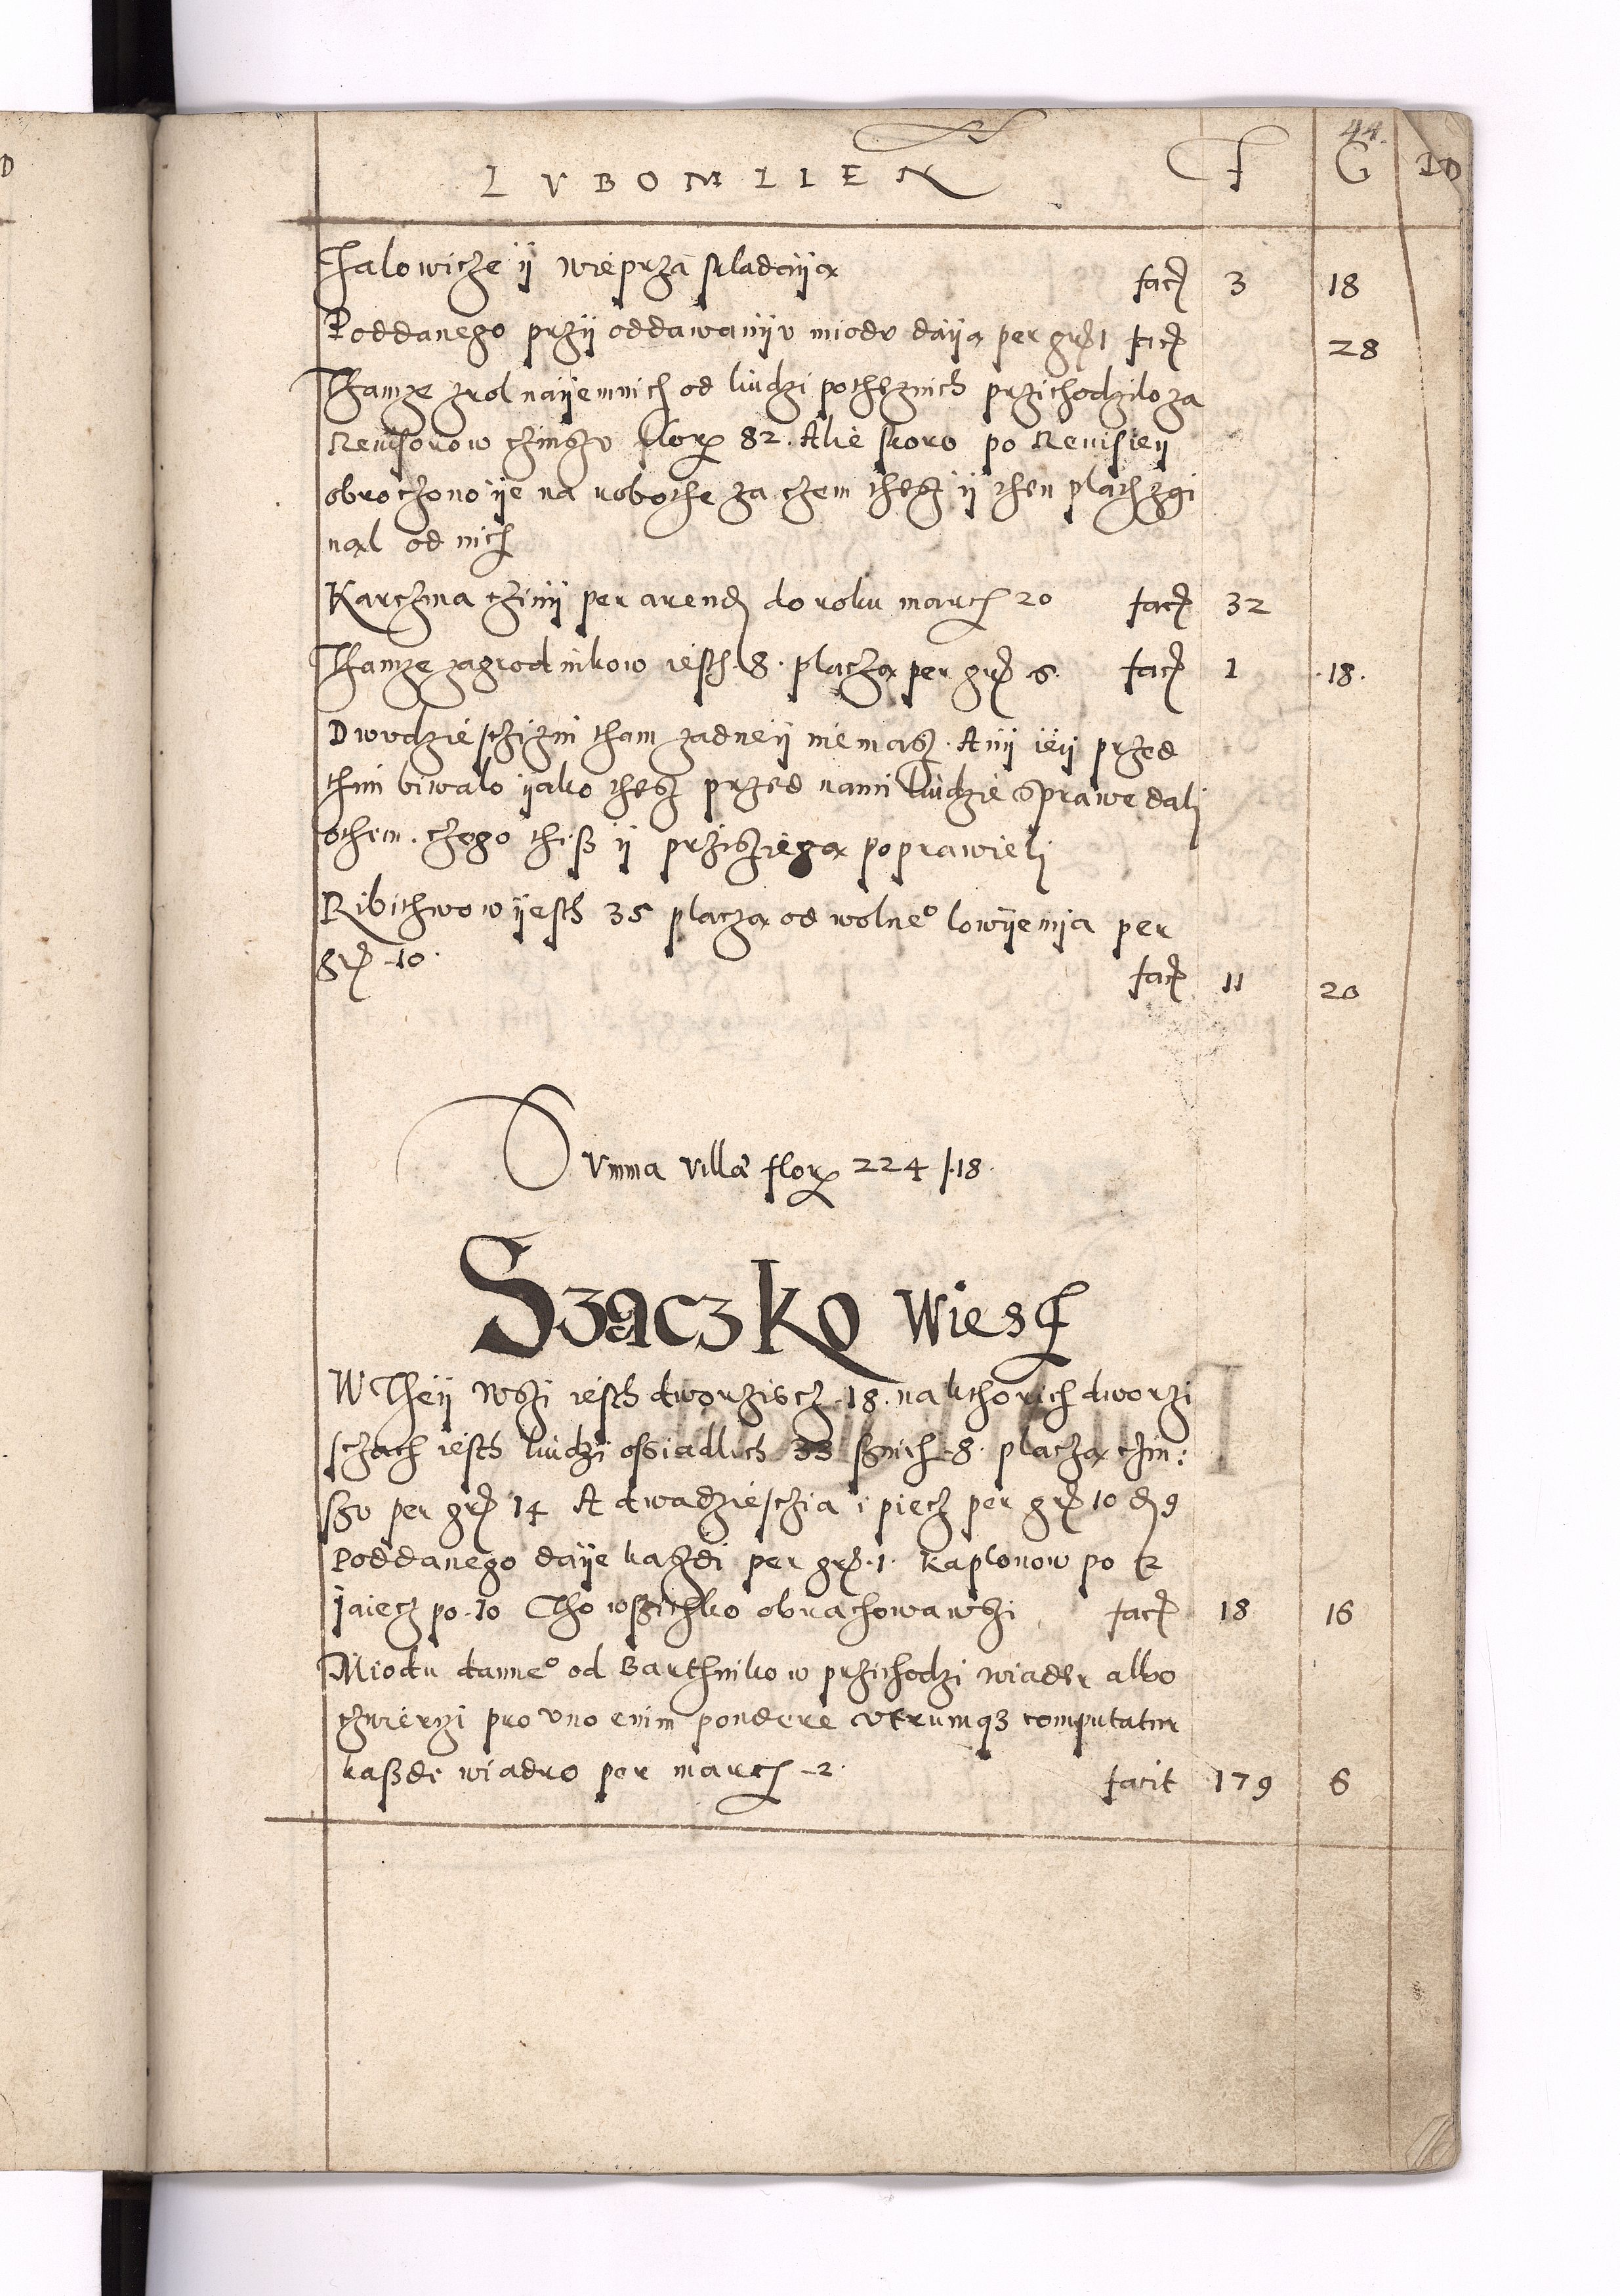 44.
LVBOMLIEN F G D
Jalowicze ÿ wieprza skladaÿą facṫ 3 18
Poddanego przÿ oddawanÿv miodv daÿą per gr 1 facṫ 28
Thamze zrol naÿemnich od liudzi pothcznich przichodzilo za
Revisorow czinszv flor 82. Alie skoro po Revisieÿ
obroczono ÿe na robothe za czem thesz ÿ then plath zgi
nąl od nich
Karczma czinÿ per arend do roku marc 20 fact 32
Thamze zagrodnikow iesth 8. placzą per gr 6. fact 1 .18.
Dwudzieschizni tham zadneÿ niemasz. Anÿ ieÿ przed
thim biwalo ÿako thesz przed nami liudzie sprawe dali
othem. czego thesz ÿ przisziegą poprawieli
Ribithwow ÿesth 35 placzą od wolne° lowÿenia per
gr 10. fact 11 20
Summa villæ flor 224 /.18.
Szaczko Wiesch
W Theÿ Wszi iesth dworziscz .18. na kthorich dworzi
sczach iesth liudzi ossiadlich 33 sznich .8. placzą czin:
szv per gr 14 A dwadzieschia i piecz per gr 10 d 9
Poddanego daÿe kazdi per gr .1. Kaplonow po 2
Jaiecz po .10 Tho wszithko obrachowawszi fact 18 16
Miodu danne° od Barthnikow przichodzi wiadr albo
czwierzi pro vno enim pondere vtrumqz computatur
kaszde wiadro per marc 2. facit 179 6